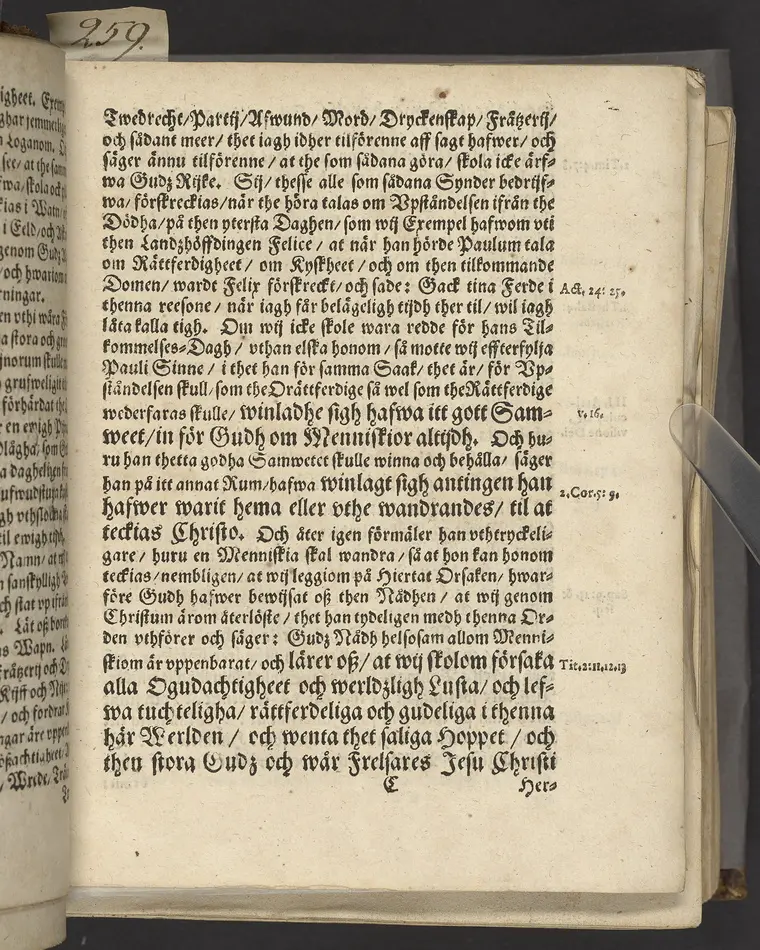 259.
Twedrecht/Partij/Afwund/Mord/Dryckenskap/Frätzerij/
och sådant meer/ thet iagh idher tilförenne aff sagt hafwer/ och
säger ännu tilförenne/ at the som sådana göra/ skola icke ärf⸗
wa Gudz Rijke. Sij/ thesse alle som sådana Synder bedrijf⸗
wa/ förskreckias/när the höra talas om Vpståndelsen ifrån the
Dödha/på then yttersta Daghen/ som wij Exempel hafwom vti
then Landzhöffdingen Felice/ at när han hörde Paulum tala
om Rättferdigheet/ om Kyskheet/ och om then tilkommande
Domen/ wardt Felix förskreckt/och sade: Gack tina Ferde i
Act. 24: 25.
thenna reesone/ när iagh får belägeligh tijdh ther til/ wil iagh
låta kalla tigh. Om wij icke skole wara redde för hans Til⸗
kommelses⸗Dagh/ vthan elska honom/ så motte wij effterfylja
Pauli Sinne/ i thet han för samma Saak/ thet är/ för Vp⸗
ståndelsen skull/ som the Orättferdige så wel som the Rättferdige
wederfaras skulle/ winladhe sigh hafwa itt gott Sam⸗
v. 16.
weet/in för Gudh om Menniskior altijdh. Och hu⸗
ru han thetta godha Samwetet skulle winna och behålla/ säger
han på itt annat Rum/hafwa winlagt sigh antingen han
2. Cor. 5: 9.
hafwer warit hema eller vthe wandrandes/ til at
teckias Christo. Och åter igen förmäler han vthtryckeli⸗
gare/ huru en Menniskia skal wandra/ så at hon kan honom
teckias/nembligen/ at wij leggiom på Hiertat Orsaken/ hwar⸗
före Gudh hafwer bewijsat oß then Nådhen/ at wij genom
Christum ärom återlöste/ thet han tydeligen medh thenna Or⸗
den vthförer och säger: Gudz Nådh helsosam allom Menni⸗
skiom är vppenbarat/ och lärer oß/ at wij skolom försaka
Tit. 2: 11. 12. 13
alla Ogudachtigheet och werldzligh Lusta/ och lef⸗
wa tuchteligha/ rättferdeliga och gudeliga i thenna
här Werlden/ och wenta thet saliga Hoppet/ och
then stora Gudz och wår Frelsares Jesu Christi
C Her⸗